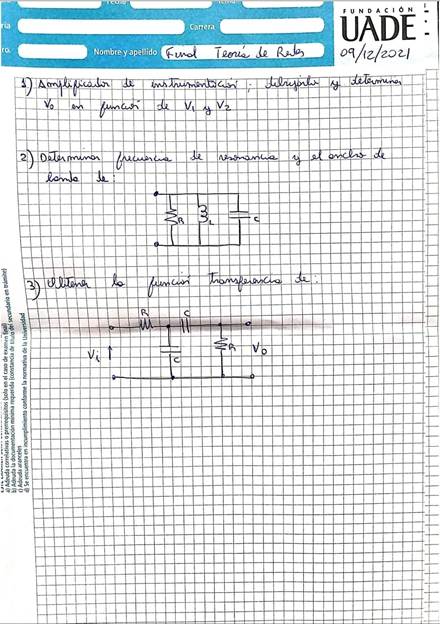 FUNDACIÓN
UADE
Carrera
Nombre y apellido Final Teoría de Redes
09/12/2021
1) Amplificador de instrumentación; dibujarlo y determinar
Vo en función de V1 y V2
2) Determinar frecuencia de resonancia y el ancho de
banda de:
R L C
3) Obtener la función transferencia de:
R C
Vi C R Vo
a) Adeuda correlativas o prerrequisitos (solo en el caso de examen final)
b) Adeuda la documentación mínima requerida (constancia de título del secundario en trámite)
c) Adeuda aranceles
d) Se encuentra en incumplimiento conforme la normativa de la Universidad